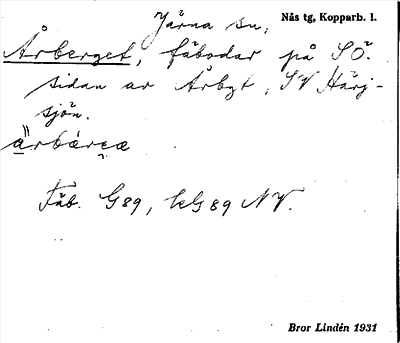 Järna sn, Nås tg, Kopparb. l.
Årberget, fäbodar på SÖ.
sidan av Årbgt, SV Härj-
sjön.
Fäb. G89, kG89 NV.
Bror Lindén 1931